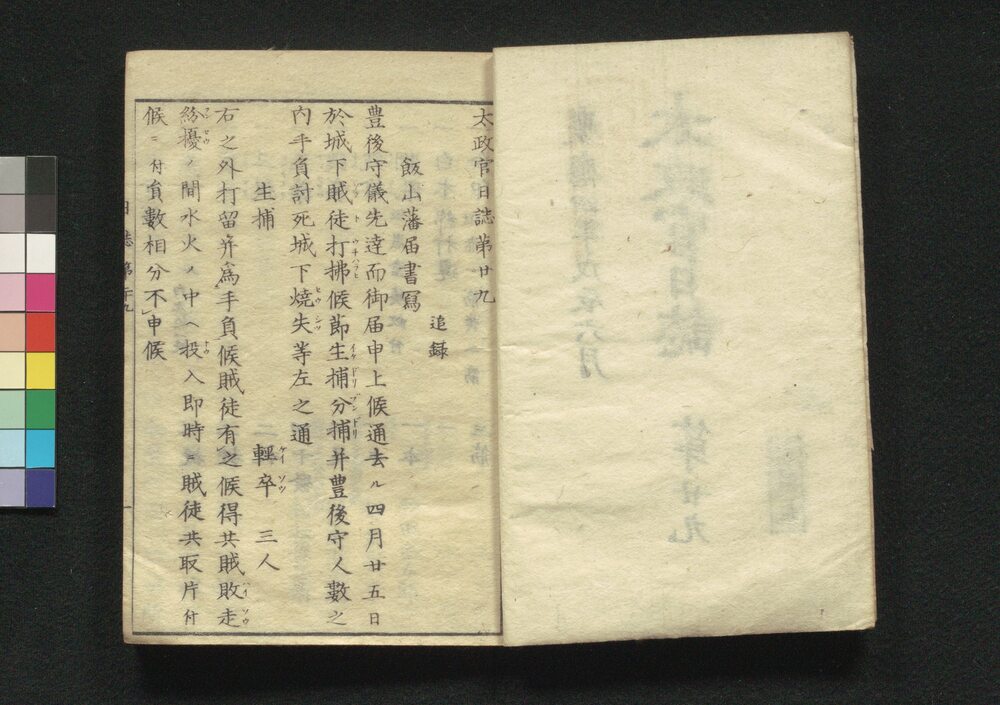 太政官日誌第廿九
追録
飯山藩届書寫
豊後守儀先達而御届申上候通去ル四月廿五日
於城下賊徒打拂候節生捕分捕并豊後守人數之
内手負討死城下燒失等左之通
生捕　輕卒　三人
右之外打留并爲手負候賊徒有之候得共賊敗走
紛擾ノ間水火ノ中ヘ投入即時ニ賊徒共取片付
候ニ付員數相分不申候
日誌　第廿九　一